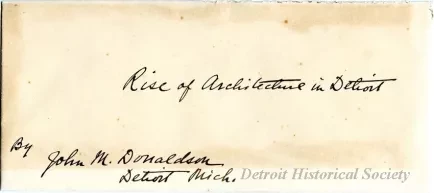 Rise of Architecture in Detroit
By
John M. Donaldson
Detroit Mich.
Detroit Historical Society